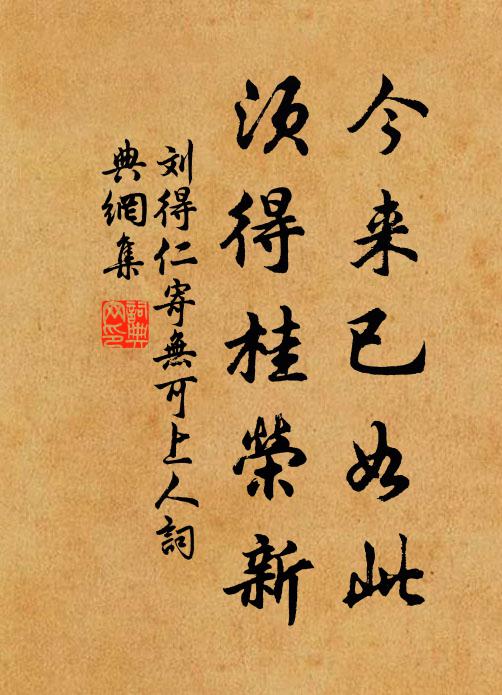 今来已如此
须得桂榮新
刘得仁寄無可上人詞
典網集
詞典网印